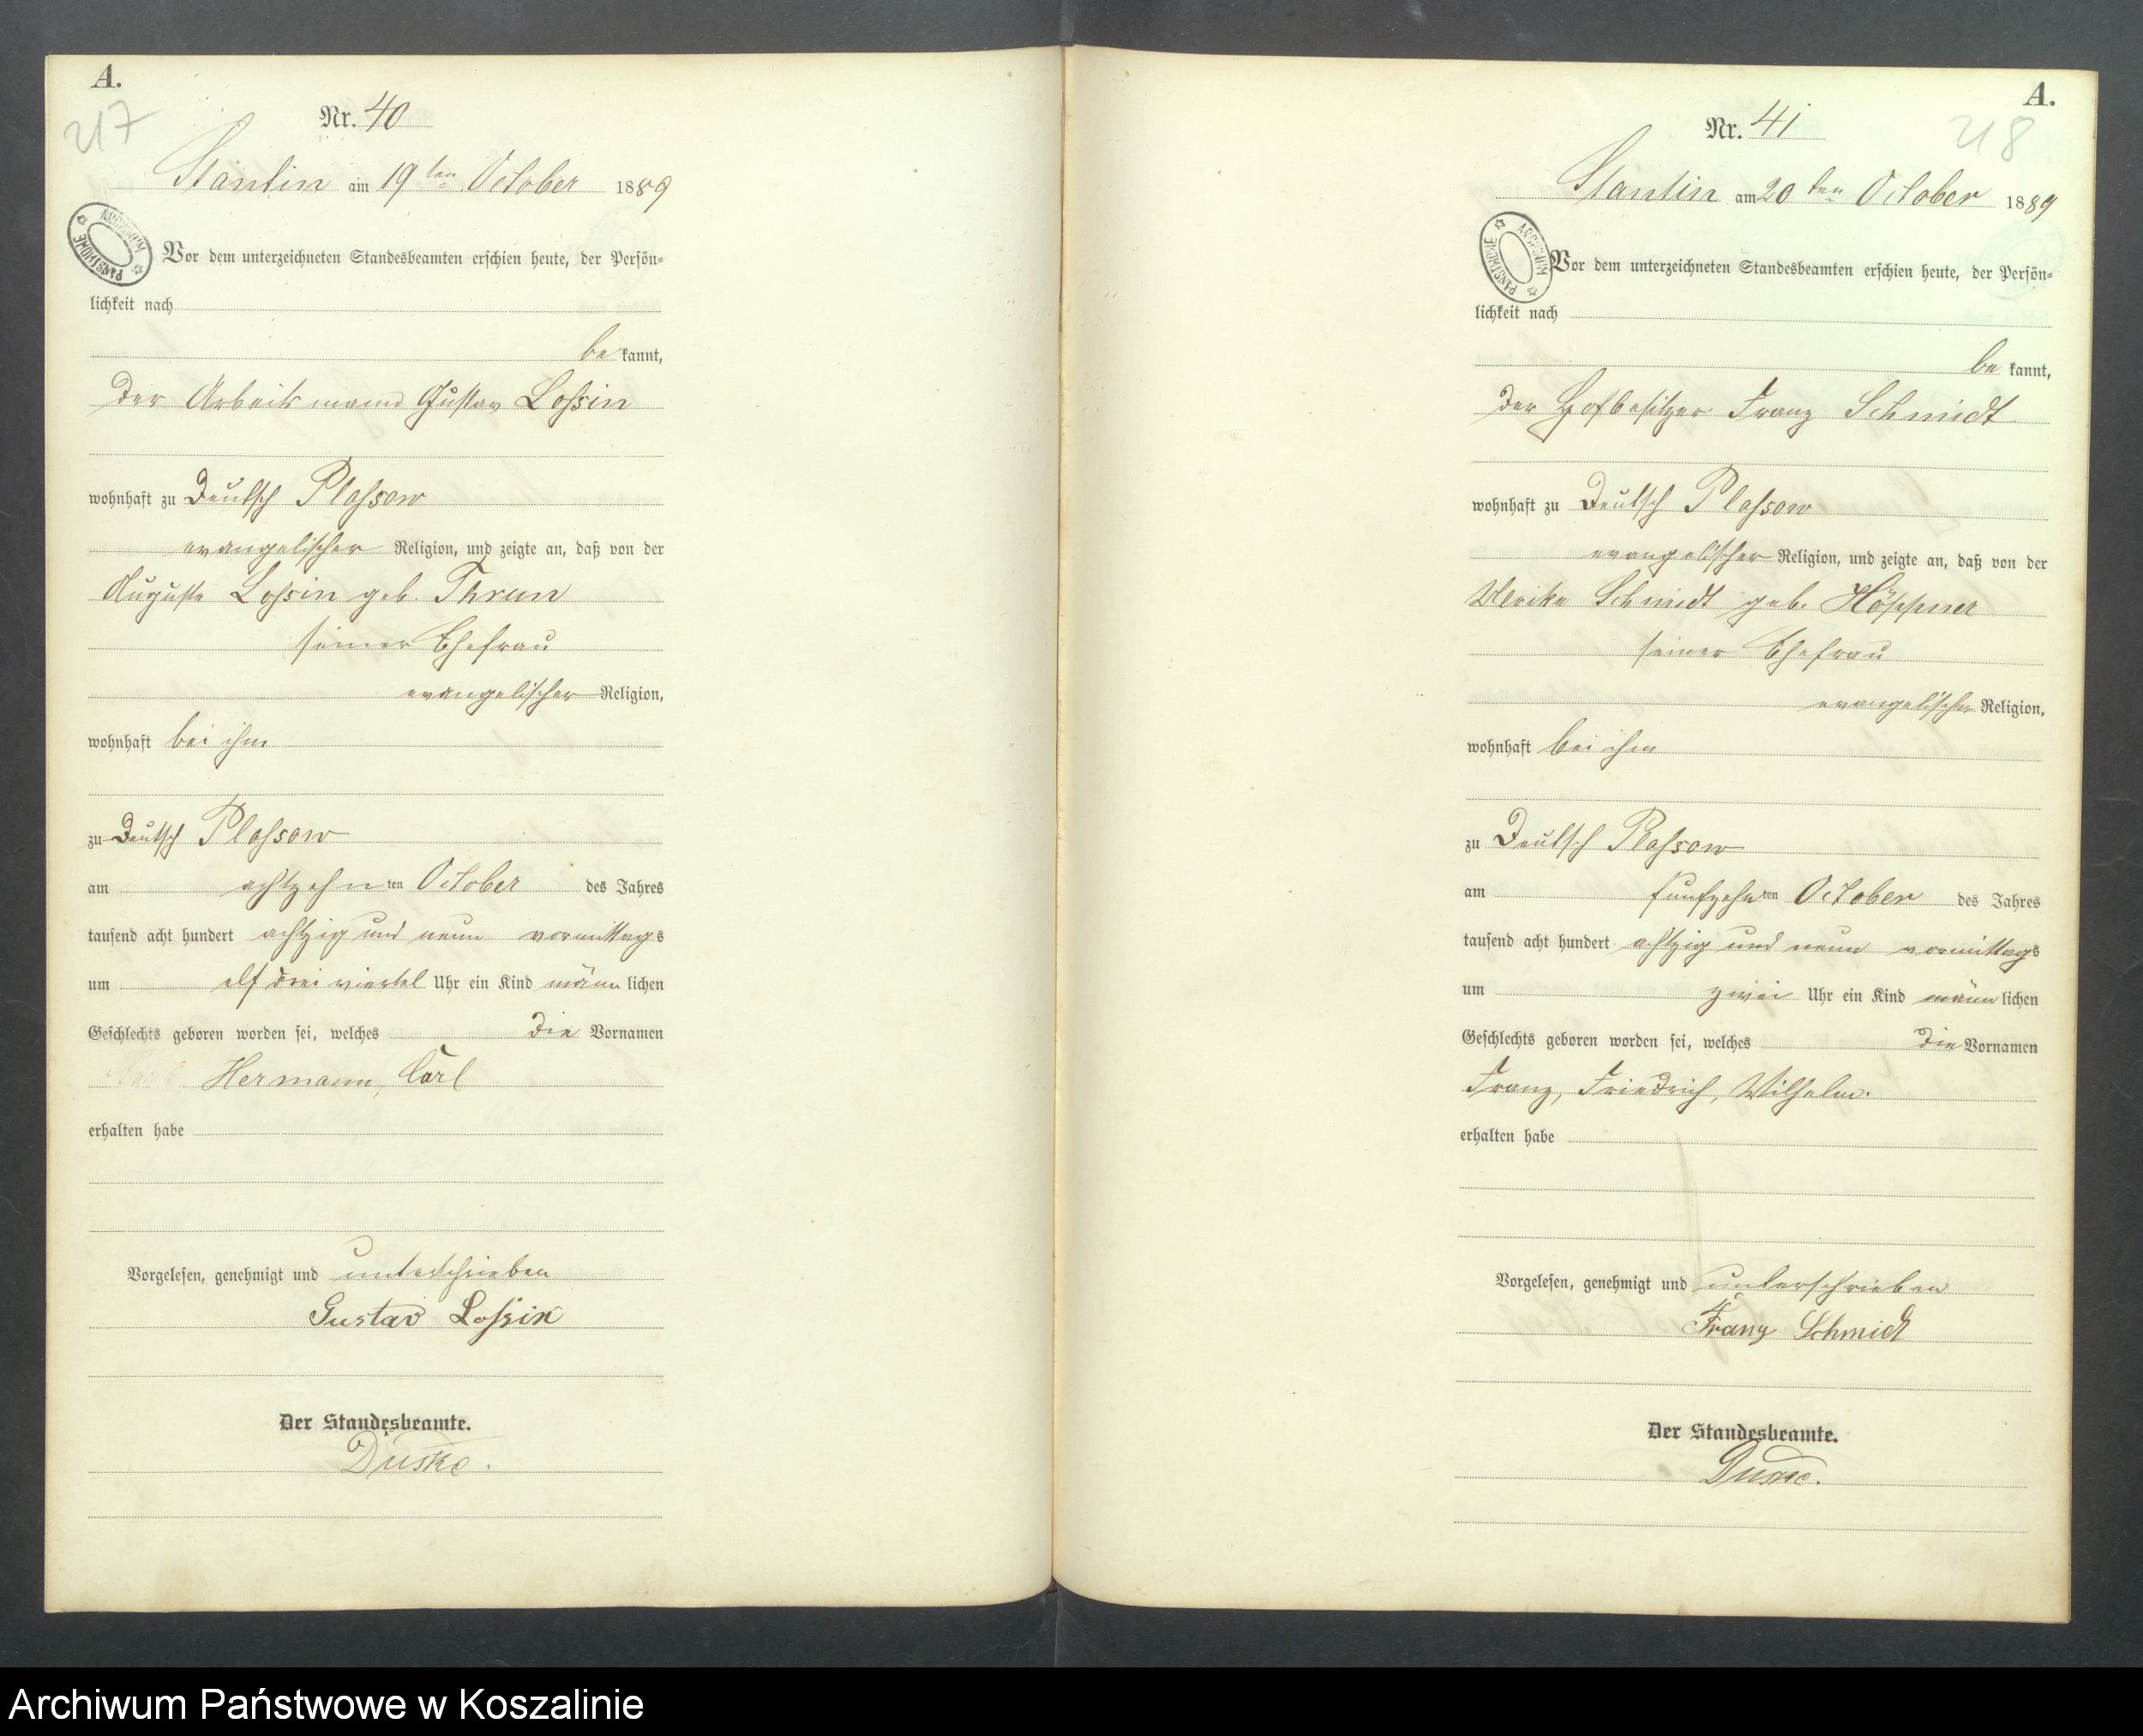 A.
217
Nr. 40
Stantin am 19ten October 1889
ARCHIWUM PAŃSTWOWE
Vor dem unterzeichneten Standesbeamten erschien heute, der Persön-
lichkeit nach
bekannt,
der Arbeitsmann Gustav Loßin
wohnhaft zu Deutsch Plassow
evangelischer Religion, und zeigte an, daß von der
Auguste Loßin geb. Thrun
seiner Ehefrau
evangelischer Religion,
wohnhaft bei ihm
zu Deutsch Plassow
am achtzehnten October des Jahres
tausend acht hundert achtzig und neun vormittags
um elf drei viertel Uhr ein Kind männlichen
Geschlechts geboren worden sei, welches die Vornamen
Hermann, Carl
erhalten habe
Vorgelesen, genehmigt und unterschrieben
Gustav Loßin
Der Standesbeamte.
Duske.
A.
218
Nr. 41
Stantin am 20ten October 1889
ARCHIWUM PAŃSTWOWE
Vor dem unterzeichneten Standesbeamten erschien heute, der Persön-
lichkeit nach
bekannt,
der Hofbesitzer Franz Schmidt
wohnhaft zu Deutsch Plassow
evangelischer Religion, und zeigte an, daß von der
Ulrike Schmidt geb. Höppner
seiner Ehefrau
evangelischer Religion,
wohnhaft bei ihm
zu Deutsch Plassow
am funfzehnten October des Jahres
tausend acht hundert achtzig und neun vormittags
um zwei Uhr ein Kind männlichen
Geschlechts geboren worden sei, welches die Vornamen
Franz, Friedrich, Wilhelm.
erhalten habe
Vorgelesen, genehmigt und unterschrieben
Franz Schmidt
Der Standesbeamte.
Duske.
Archiwum Państwowe w Koszalinie